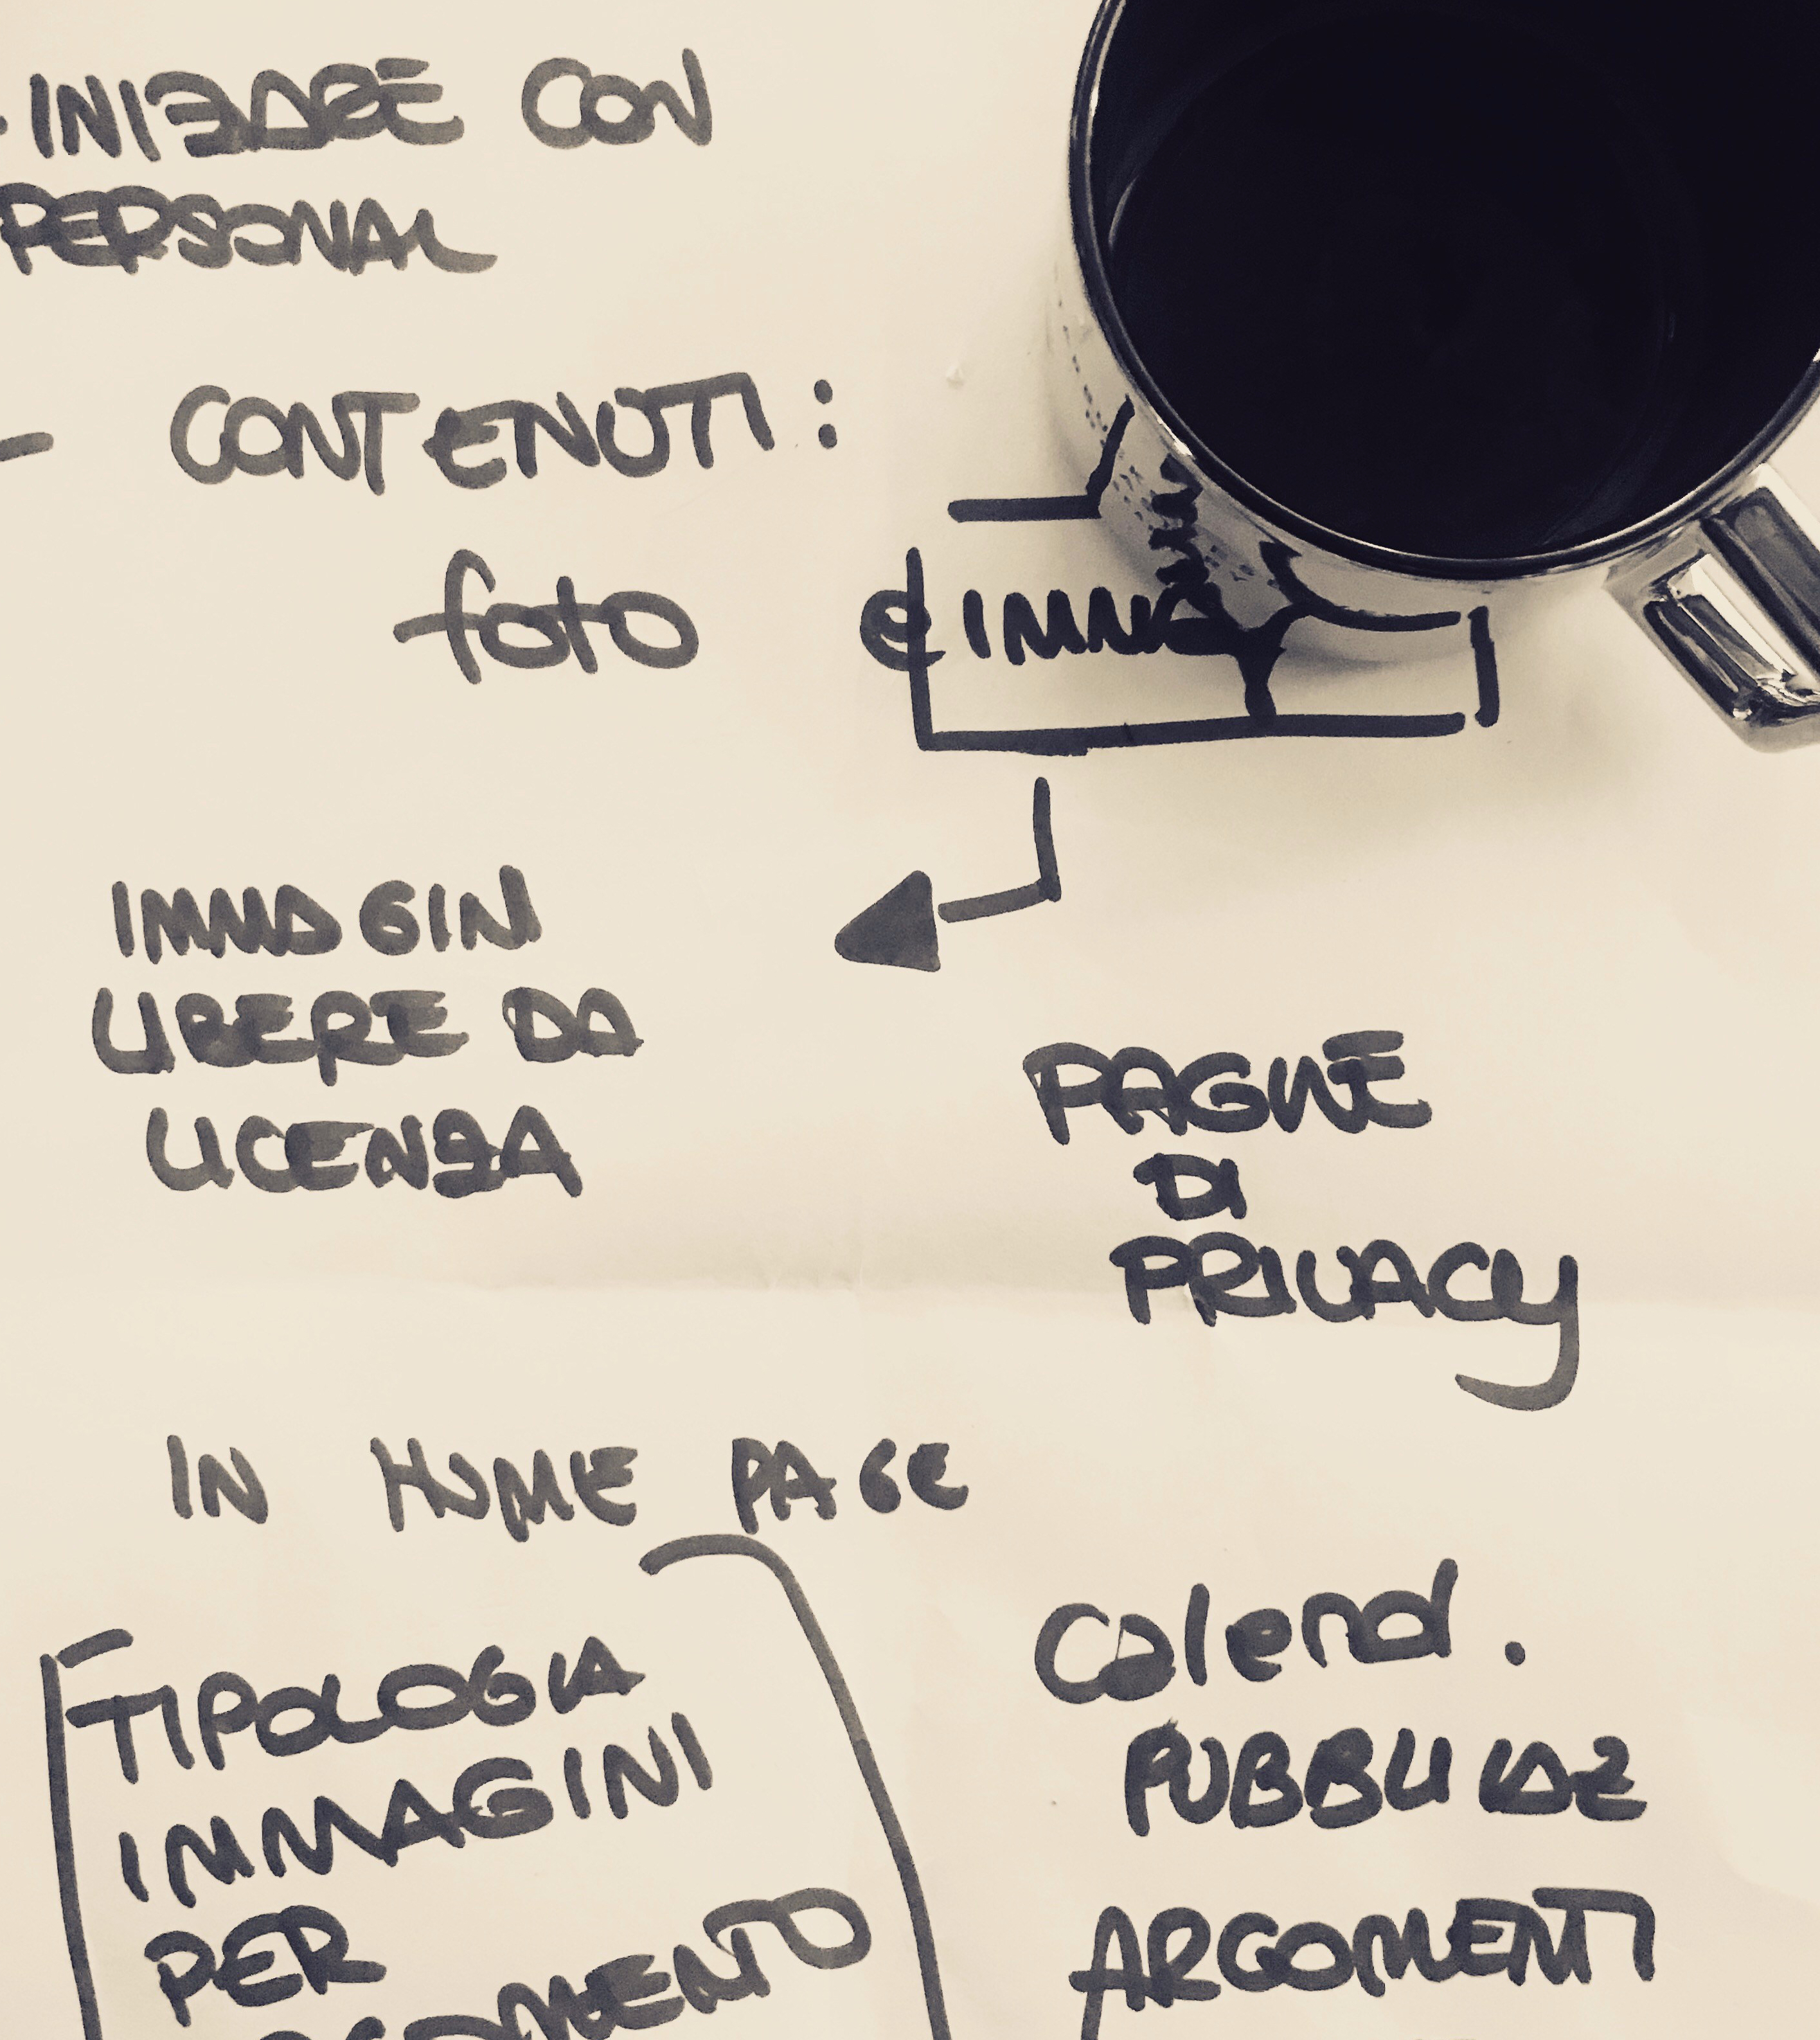 - INIZIARE CON
PERSONAL
- CONTENUTI:
foto e IMMAG
IMMAGINI
LIBERE DA
LICENZA
PAGINE
DI
PRIVACY
IN HOME PAGE
TIPOLOGIA
IMMAGINI
PER
Calend.
PUBBLICAZ
ARGOMENTI